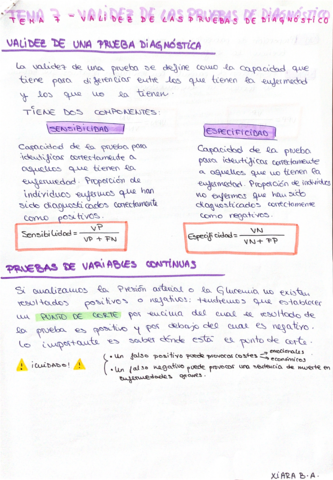 TEMA 7 - VALIDEZ DE LAS PRUEBAS DE DIAGNÓSTICO
VALIDEZ DE UNA PRUEBA DIAGNÓSTICA
La validez de una prueba se define como la capacidad que
tiene para diferenciar entre los que tienen la enfermedad
y los que no la tienen.
TIENE DOS COMPONENTES:
SENSIBILIDAD
Capacidad de la prueba para
identificar correctamente a
aquellos que tienen la
enfermedad. Proporción de
individuos enfermos que han
sido diagnosticados correctamente
como positivos.
Sensibilidad = VP
VP + FN
ESPECIFICIDAD
Capacidad de la prueba
para identificar correctamente
a aquellos que no tienen la
enfermedad. Proporción de individuos
no enfermos que han sido
diagnosticados correctamente
como negativos.
Especificidad = VN
VN + FP
PRUEBAS DE VARIABLES CONTINUAS
Si analizamos la Presión arterial o la Glucemia no existen
resultados positivos o negativos: tendremos que establecer
un PUNTO DE CORTE por encima del cual el resultado de
la prueba es positivo y por debajo del cual es negativo.
Lo importante es saber dónde está el punto de corte.
¡CUIDADO!
• Un falso positivo puede provocar costes → emocionales
→ económicos
• Un falso negativo puede provocar una sentencia de muerte en
enfermedades graves.
XIARA B.A.